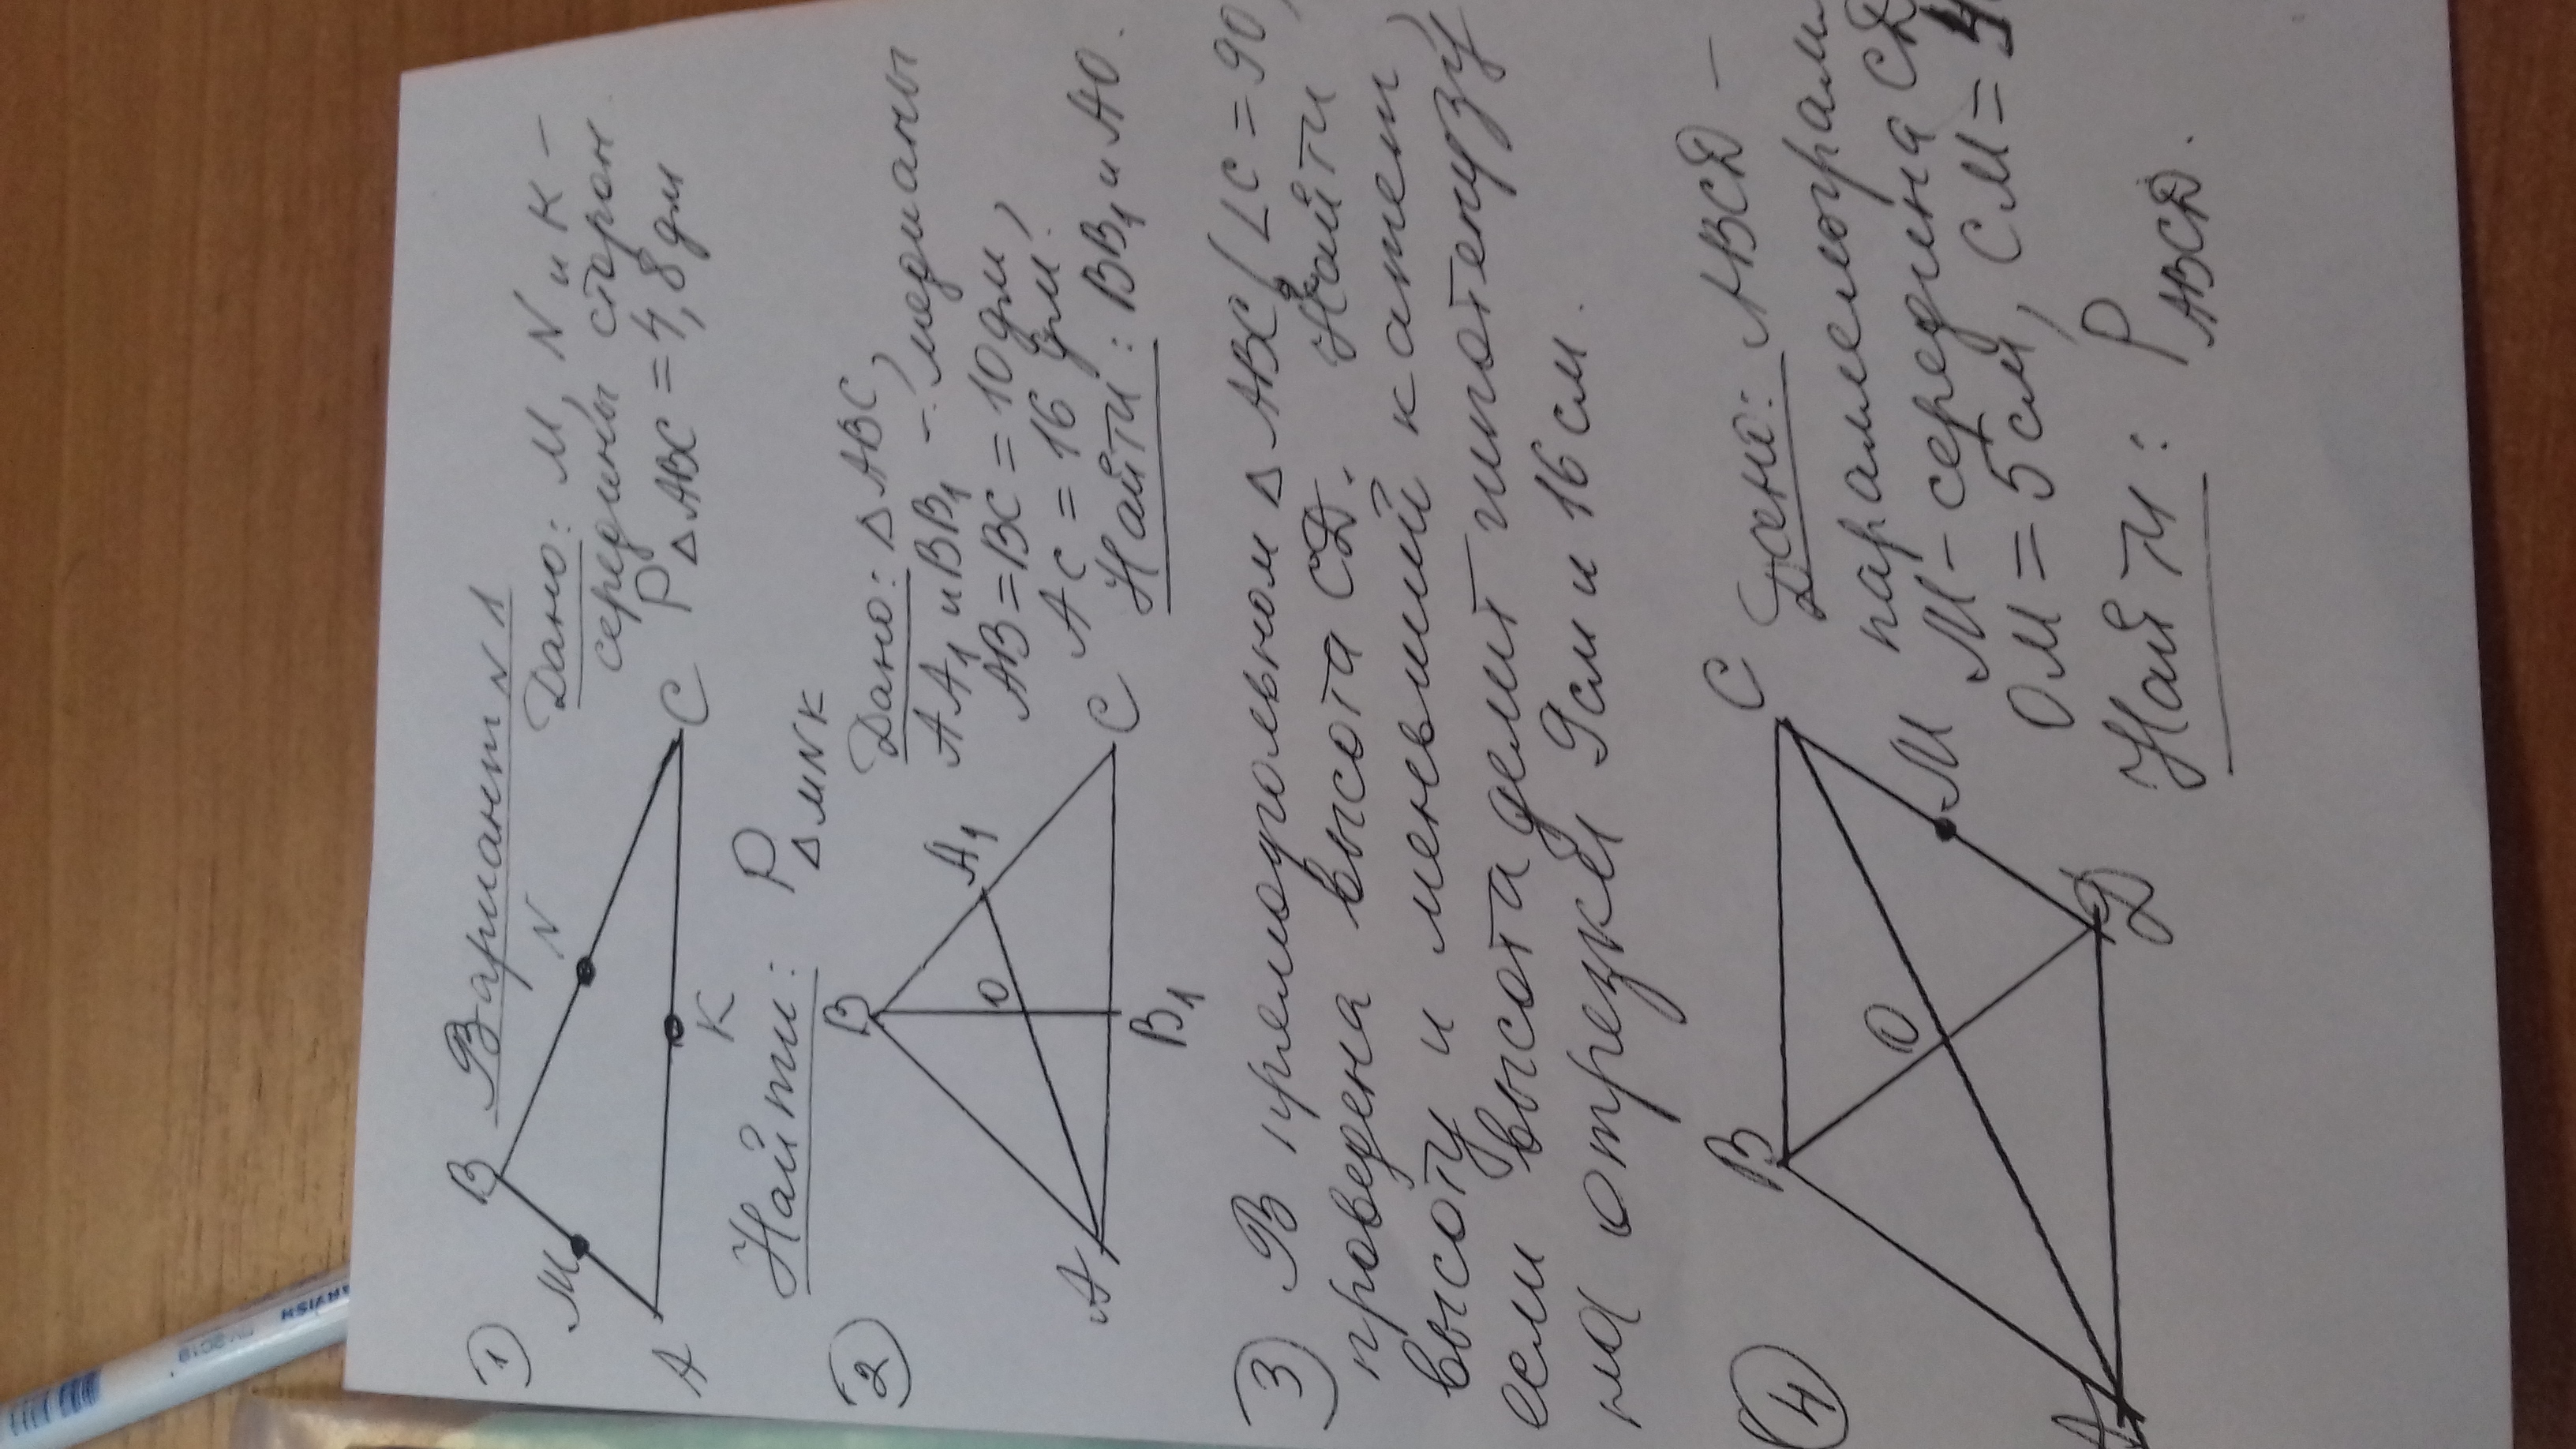 Вариант N 1
① Дано: M, N и K –
середины сторон
P△ABC = 4,8 дм
B
M
N
A
K
C
Найти: P△MNK
② Дано: △ABC,
AA₁ и BB₁ – медианы
AB = BC = 10 дм,
AC = 16 дм.
Найти: BB₁ и AO.
B
A₁
O
A
B₁
C
③ В прямоугольном △ABC (∠C = 90
проведена высота CD. Найти
высоту и меньший катет,
если высота делит гипотенузу
на отрезки 9см и 16см.
④ Дано: ABCD –
параллелограмм
M – середина CD
OM = 5см, CM =
Найти: P ABCD.
B
C
O
M
A
D